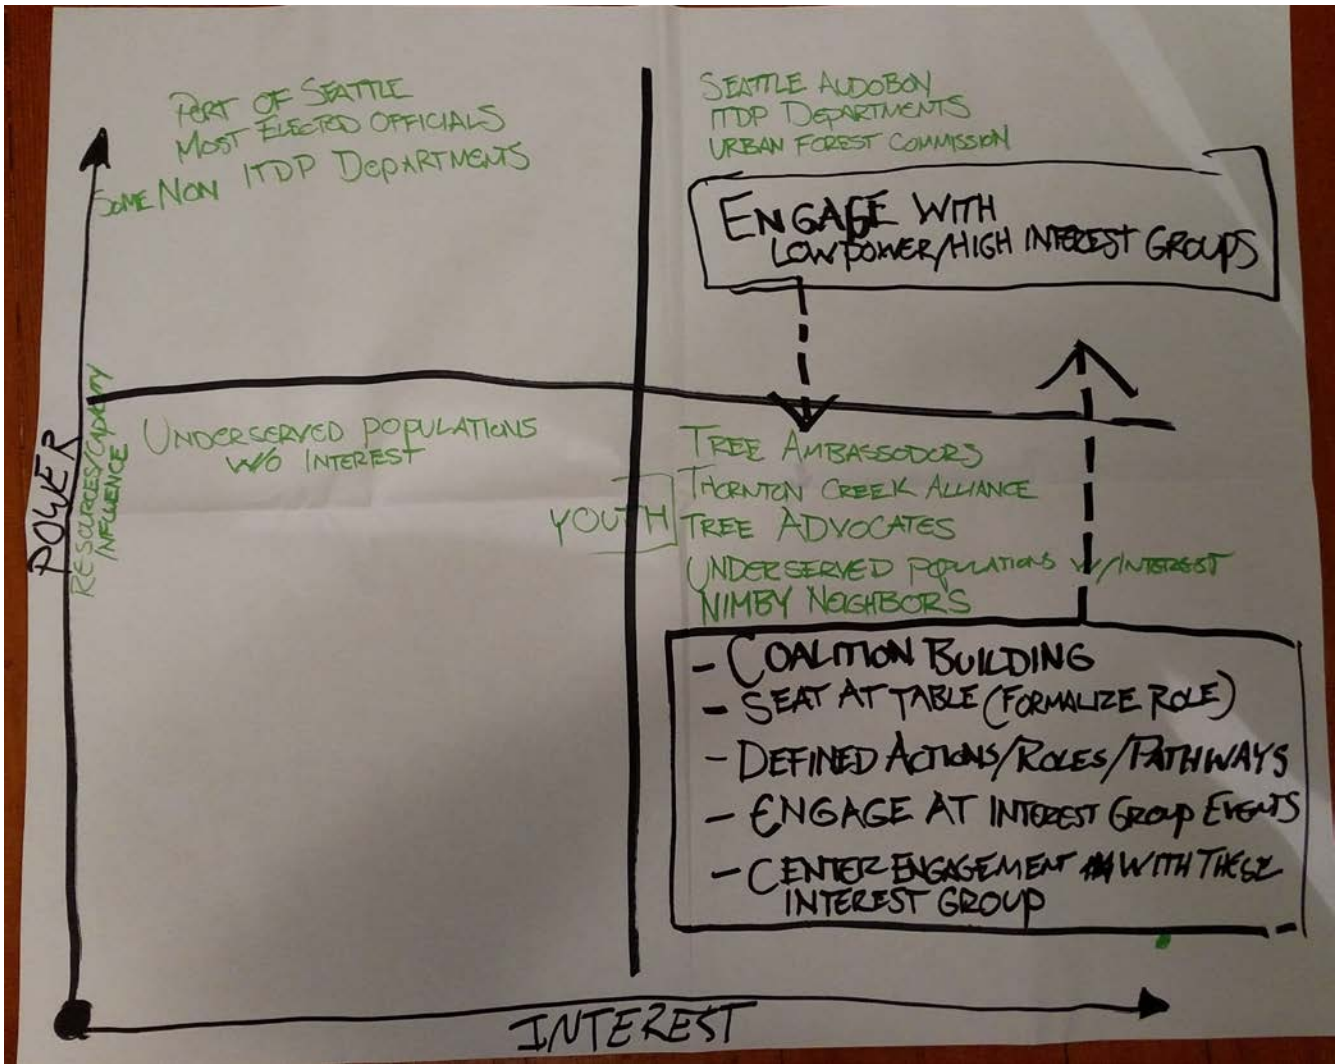 PORT OF SEATTLE
MOST ELECTED OFFICIALS
SOME NON ITDP DEPARTMENTS
SEATTLE AUDOBON
ITDP DEPARTMENTS
URBAN FOREST COMMISSION
ENGAGE WITH
LOW POWER/HIGH INTEREST GROUPS
POWER
RESOURCES/CAPACITY
INFLUENCE
UNDERSERVED POPULATIONS
W/O INTEREST
YOUTH
TREE AMBASSODORS
THORNTON CREEK ALLIANCE
TREE ADVOCATES
UNDERSERVED POPULATIONS W/INTEREST
NIMBY NEIGHBOR'S
- COALITION BUILDING
- SEAT AT TABLE (FORMALIZE ROLE)
- DEFINED ACTIONS/ROLES/PATHWAYS
- ENGAGE AT INTEREST GROUP EVENTS
- CENTER ENGAGEMENT WITH THESE
INTEREST GROUP
INTEREST